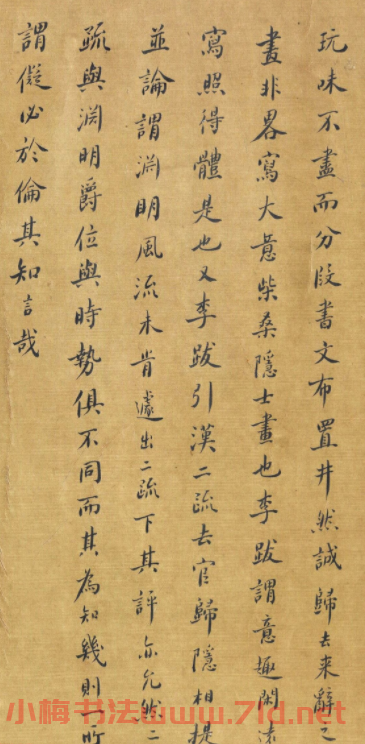 玩味不盡而分段書文布置井然誠歸去来辭之
畫非畧寫大意柴桑隱士畫也李跋謂意趣閑遠
寫照得體是也又李跋引漢二疏去官歸隱相提
並論謂淵明風流未肯遽出二疏下其評亦允然二
疏與淵明爵位與時勢俱不同而其為知幾則一所
謂儗必於倫其知言哉
小梅书法www.7ld.net